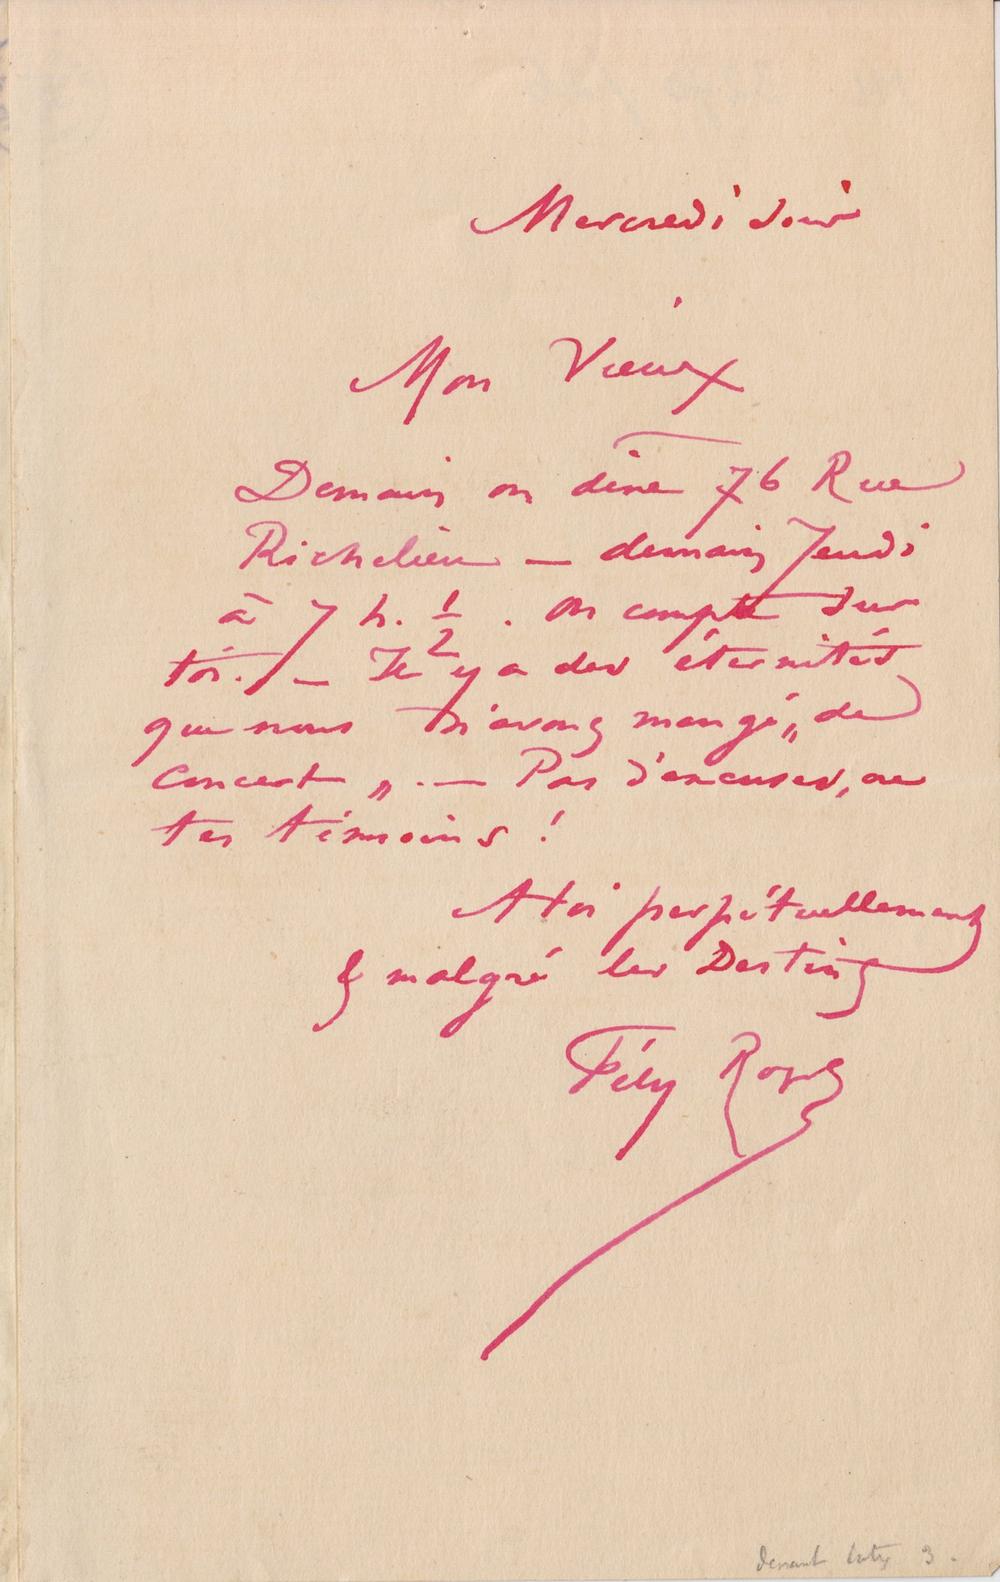 Mercredi soir
Mon Vieux
Demain on dine 76 Rue
Richelieu — demain Jeudi
à 7 h. 1/2. On compte sur
toi. — Il y a des éternités
que nous n'avons mangé „ de
concert „ . — Pas d'excuses, ou
tes témoins !
A toi perpétuellement
& malgré les Destins
Fély Rops
3.